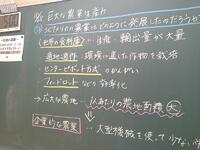 巨大な農業生産力
アメリカの農業はどのように発展したのだろうか
世界の食料庫 … 生産・輸出量が大量
適地適作：環境に適した作物を栽培
センターピボット方式 のかんがい
フィードロット などの 効率化
→ 広大な農地 → 1人あたりの農地面積 大
企業的な農業 … 大型機械を使って 少ない